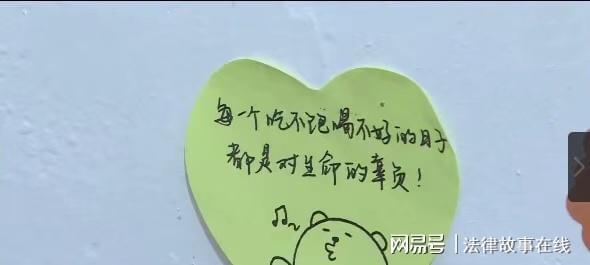 每一个吃不饱喝不好的日子
都是对生命的辜负！
网易号 | 法律故事在线